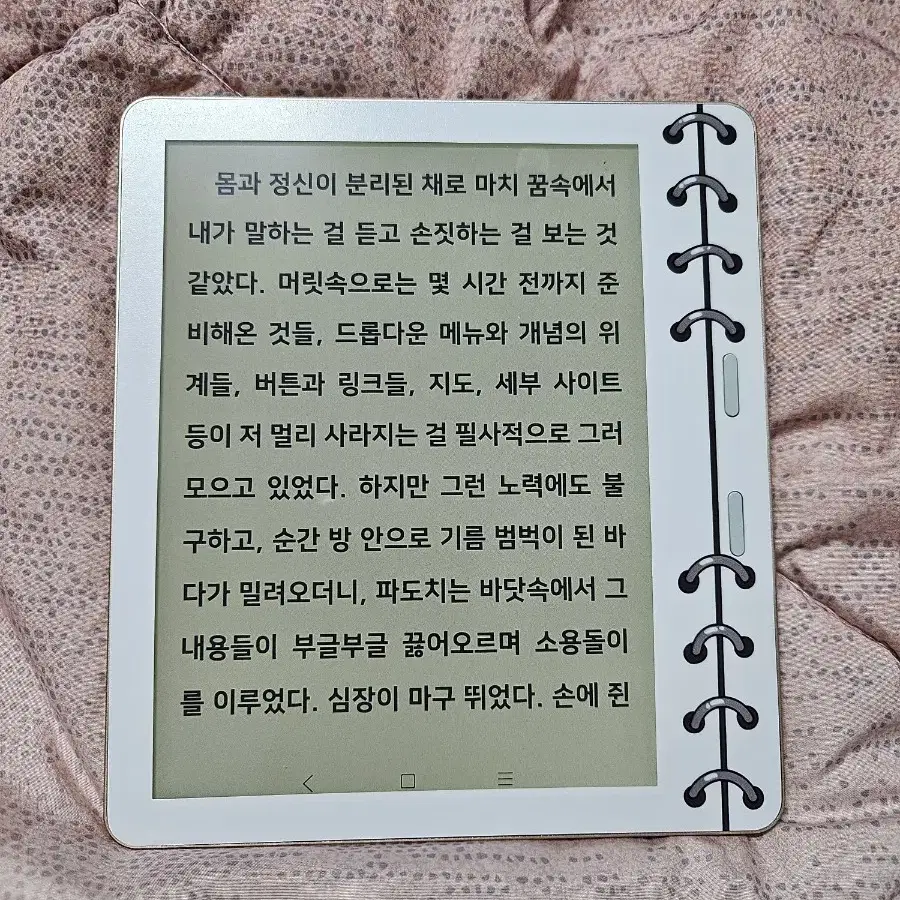 몸과 정신이 분리된 채로 마치 꿈속에서
내가 말하는 걸 듣고 손짓하는 걸 보는 것
같았다. 머릿속으로는 몇 시간 전까지 준
비해온 것들, 드롭다운 메뉴와 개념의 위
계들, 버튼과 링크들, 지도, 세부 사이트
등이 저 멀리 사라지는 걸 필사적으로 그러
모으고 있었다. 하지만 그런 노력에도 불
구하고, 순간 방 안으로 기름 범벅이 된 바
다가 밀려오더니, 파도치는 바닷속에서 그
내용들이 부글부글 끓어오르며 소용돌이
를 이루었다. 심장이 마구 뛰었다. 손에 쥔